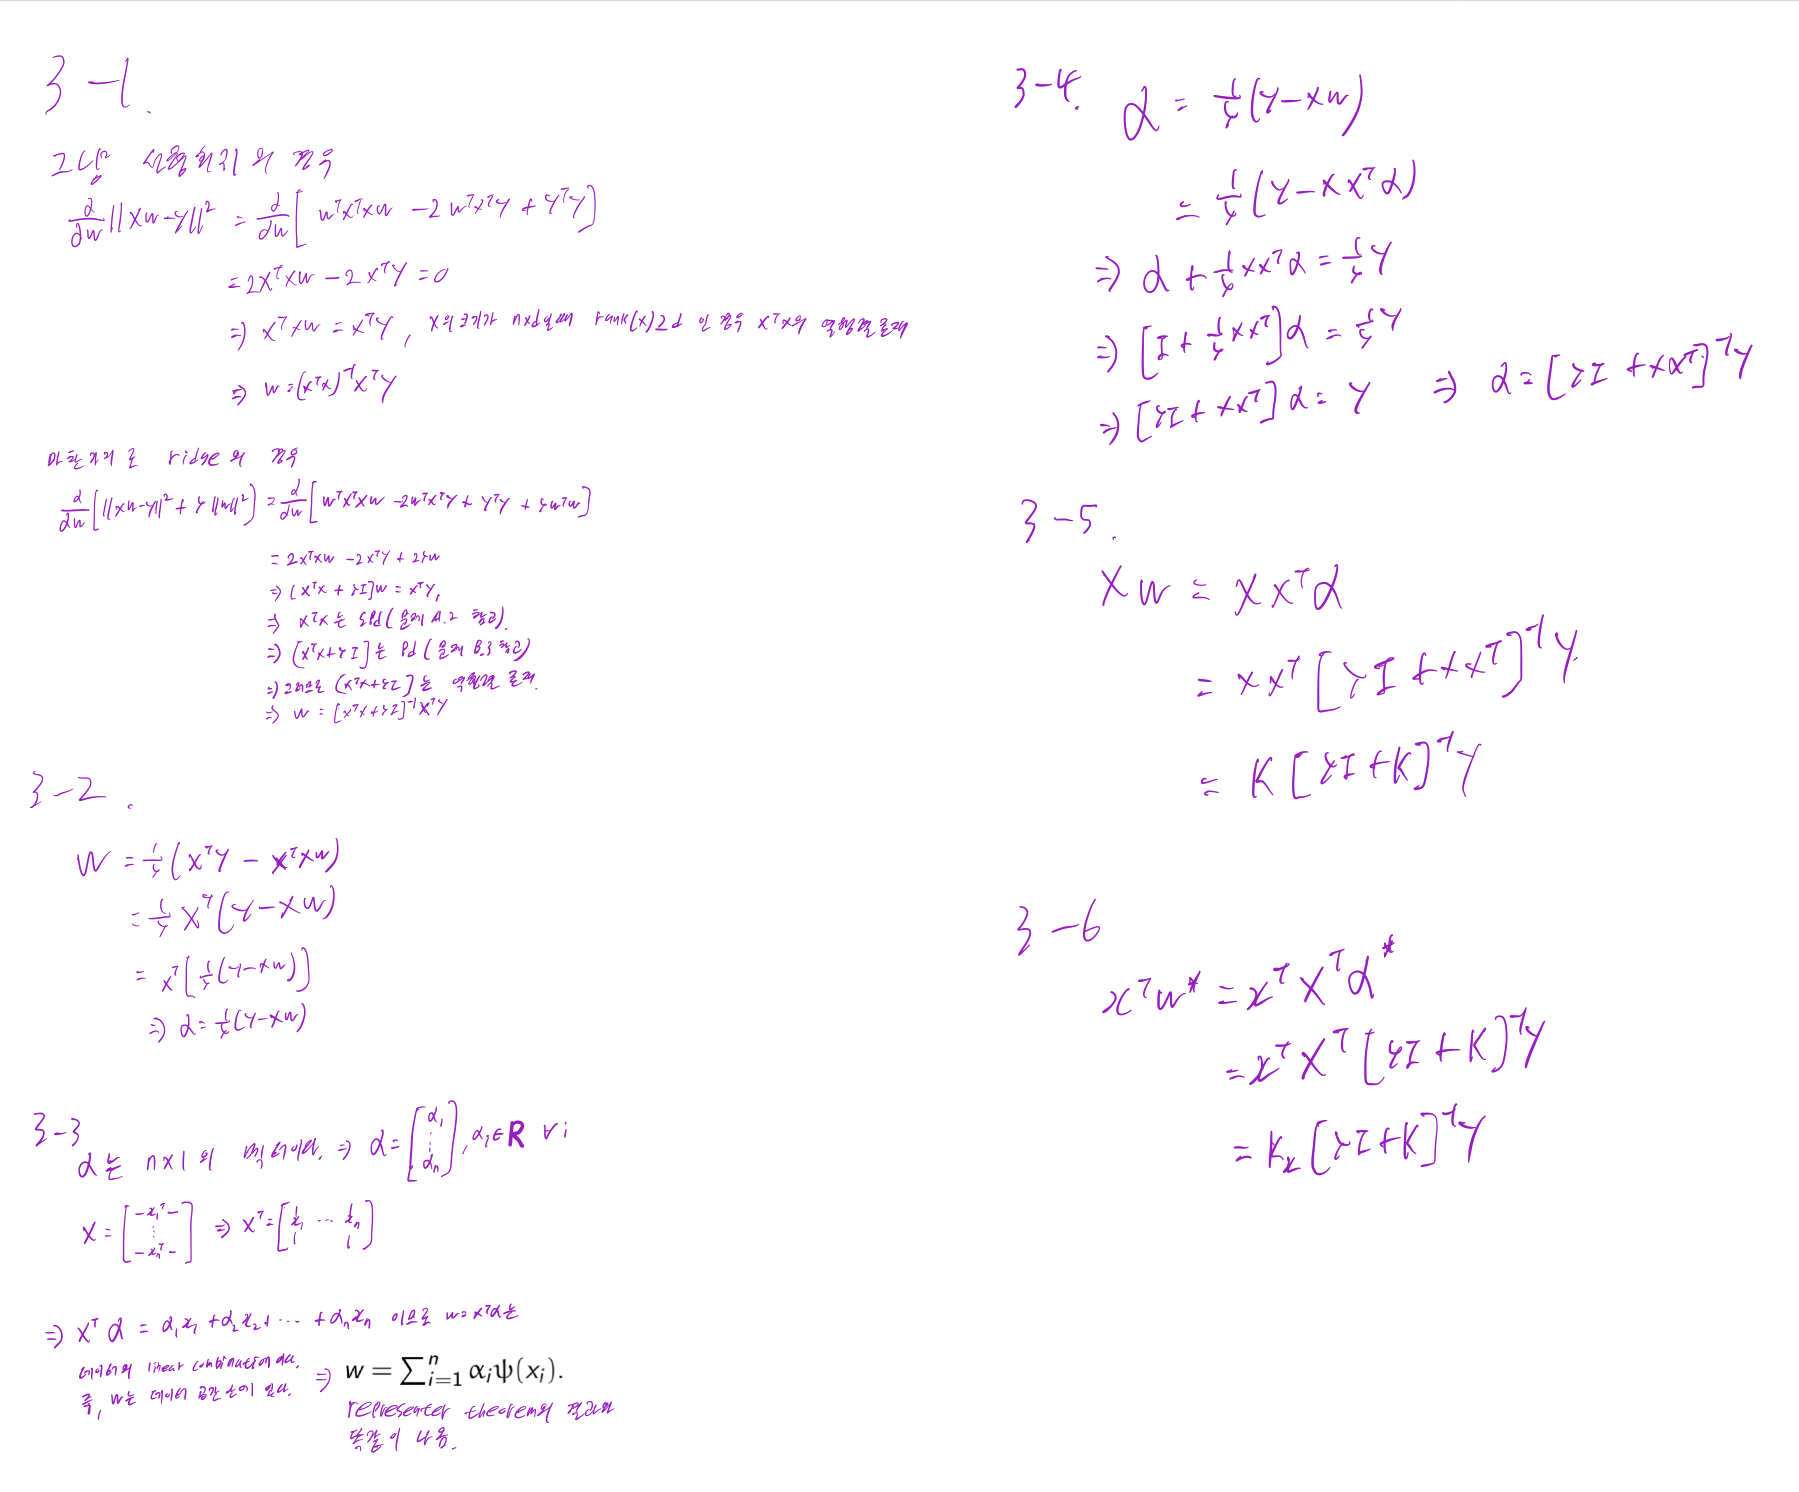 3-1.
그냥 선형회귀의 경우
∂/∂w ||Xw-y||² = ∂/∂w [ wᵀXᵀXw - 2wᵀXᵀy + yᵀy ]
= 2XᵀXw - 2Xᵀy = 0
⇒ XᵀXw = Xᵀy, X의 크기가 n×d일때 rank(X)≥d 인 경우 XᵀX의 역행렬 존재
⇒ w = (XᵀX)⁻¹Xᵀy
마찬가지로 ridge의 경우
∂/∂w [||Xw-y||² + λ||w||²] = ∂/∂w [wᵀXᵀXw - 2wᵀXᵀy + yᵀy + λwᵀw]
= 2XᵀXw - 2Xᵀy + 2λw
⇒ [XᵀX + λI]w = Xᵀy,
⇒ XᵀX는 spd (문제 A.2 참고).
⇒ [XᵀX+λI]는 pd (문제 B.3 참고)
⇒ 그러므로 [XᵀX+λI]는 역행렬 존재.
⇒ w = [XᵀX+λI]⁻¹Xᵀy
3-2.
w = 1/λ (Xᵀy - XᵀXw)
= 1/λ Xᵀ(y-Xw)
= Xᵀ[1/λ(y-Xw)]
⇒ α = 1/λ(y-Xw)
3-3
α는 n×1의 벡터이다. ⇒ α = [α₁ ⋮ αₙ], αᵢ∈R ∀i
X = [-x₁ᵀ- ⋮ -xₙᵀ-] ⇒ Xᵀ = [x₁ ⋯ xₙ]
⇒ Xᵀα = α₁x₁ + α₂x₂ + ⋯ + αₙxₙ 이므로 w=Xᵀα는
데이터의 linear combination이다.
즉, w는 데이터 공간 안에 있다. ⇒ w = ∑ⁿᵢ₌₁ αᵢψ(xᵢ).
representer theorem의 결과와
똑같이 나옴.
3-4.
α = 1/λ(y-Xw)
= 1/λ(y-XXᵀα)
⇒ α + 1/λ XXᵀα = 1/λ y
⇒ [I + 1/λ XXᵀ]α = 1/λ y
⇒ [λI + XXᵀ]α = y ⇒ α = [λI + XXᵀ]⁻¹y
3-5.
Xw = XXᵀα
= XXᵀ[λI + XXᵀ]⁻¹y
= K[λI+K]⁻¹y
3-6
xᵀw* = xᵀXᵀα*
= xᵀXᵀ[λI+K]⁻¹y
= Kₓ[λI+K]⁻¹y